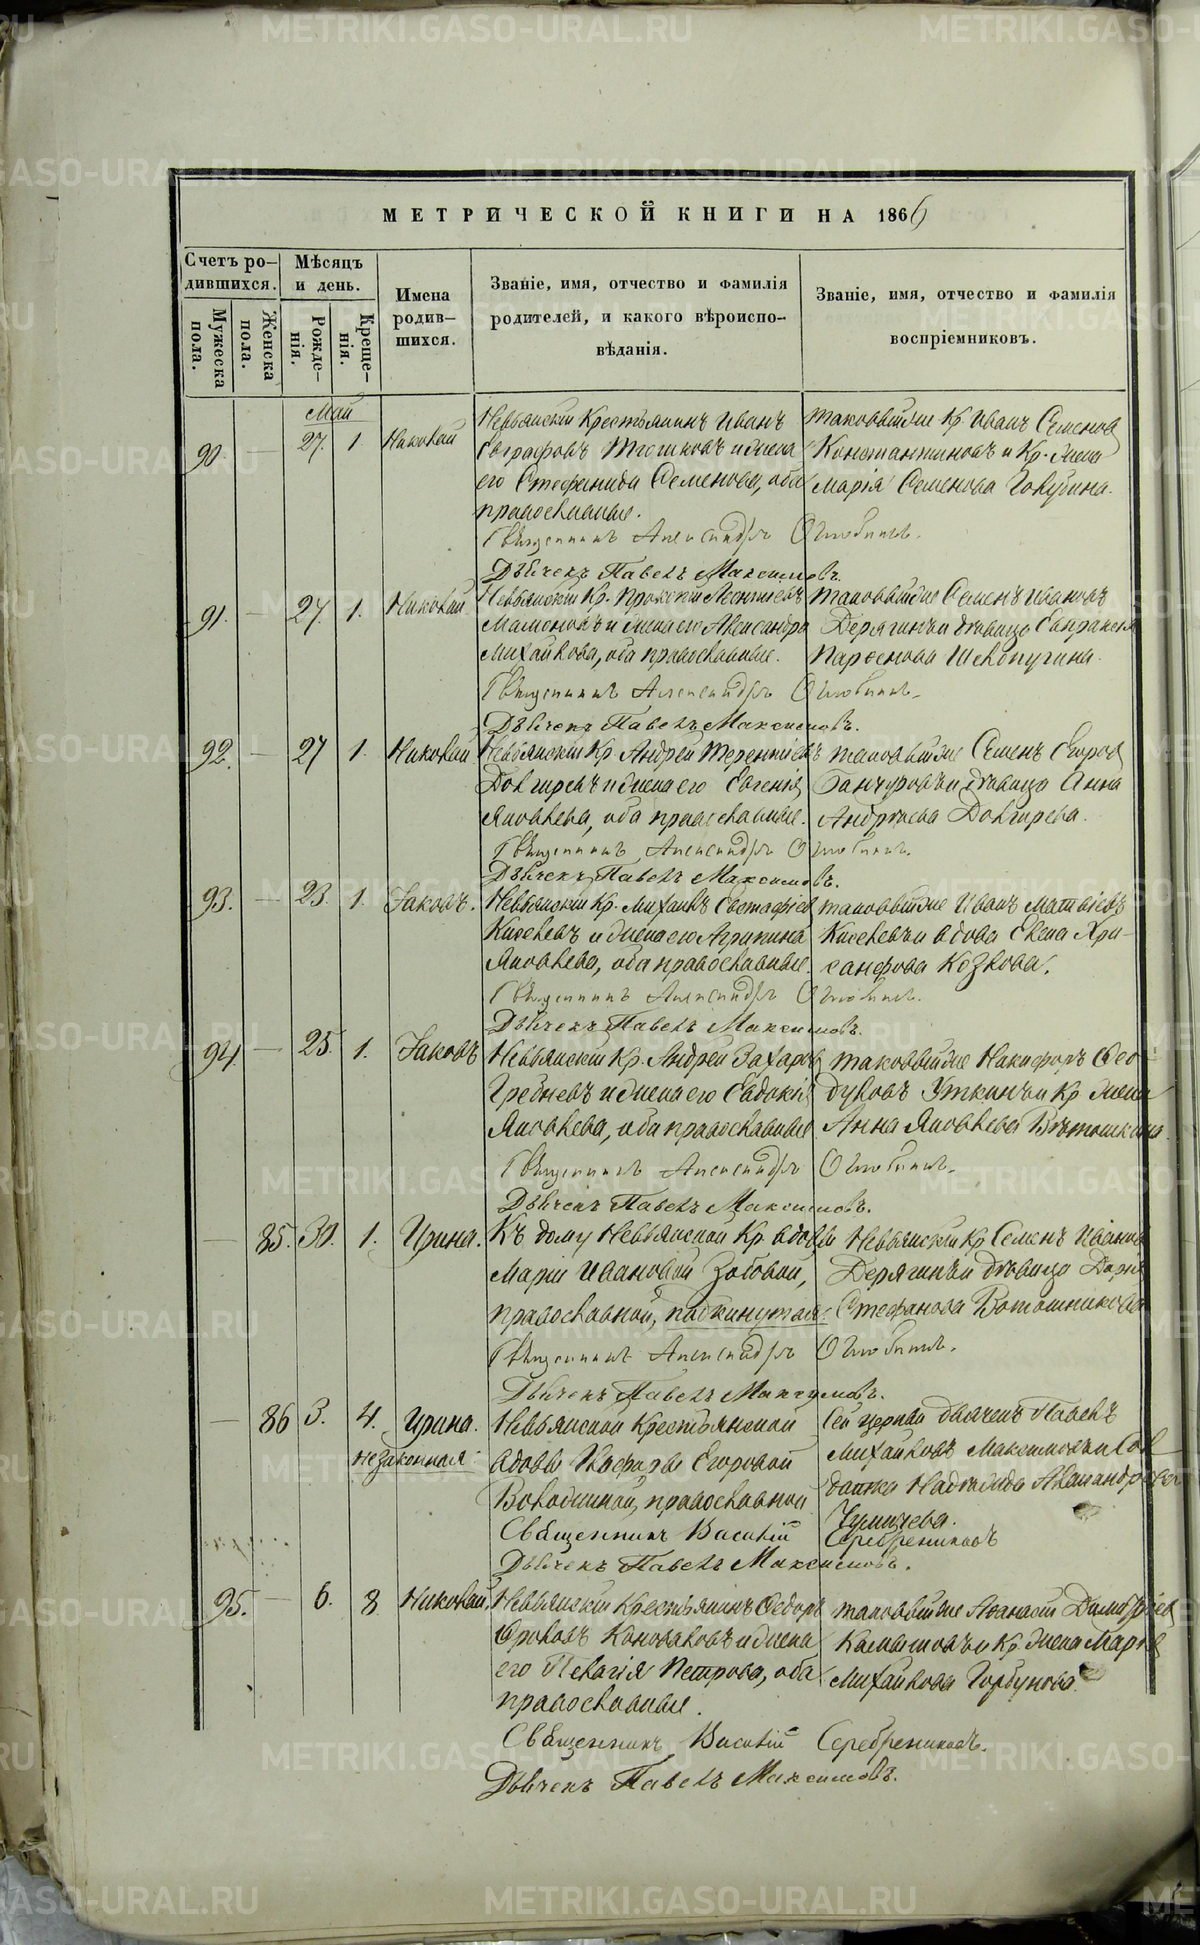 МЕТРИЧЕСКОЙ КНИГИ НА 1866
Счетъ ро-
дившихся.
Мужеска пола.
Женска пола.
Мѣсяцъ
и день.
Рожде-
нія.
Креще-
нія.
Имена
родив-
шихся.
Званіе, имя, отчество и фамилія
родителей, и какого вѣроиспо-
вѣданія.
Званіе, имя, отчество и фамилія
воспріемниковъ.
Май
90. — 27. 1 Николай
Невьянскій Крестьянинъ Иванъ
Евграфовъ и жена
его Стефанида Семенова, оба
православные.
таковыйже Кр. Иванъ Семенов
Константиновъ и Кр. жена
Марія Семенова Голубина.
Священникъ Александръ
Дьячекъ Павелъ Максимовъ.
91. — 27. 1. Николай
Невьянскій Кр. Прокопій Леонтьевъ
Мамоновъ и жена его Александра
Михайлова, оба православные.
таковыйже Семенъ Ивановъ
Дерягинъ и дѣвица
Парѳенова Шевопугина.
Священникъ Александръ
Дьячекъ Павелъ Максимовъ.
92. — 27 1. Николай
Невьянскій Кр. Андрей Терентіевъ
Долгиревъ и жена его Евгенія
Яковлева, оба православные.
таковыйже Семенъ Егоров
и дѣвица Анна
Андреева Долгирева.
Священникъ Александръ
Дьячекъ Павелъ Максимовъ.
93. — 23. 1. Іаковъ.
Невьянскій Кр. Михаилъ Евстафіев
Киселевъ и жена его Агрипина
Яковлева, оба православные.
таковыйже Иванъ Матвіевъ
Киселевъ и вдова Елена Хри-
санфова Козлова.
Священникъ Александръ
Дьячекъ Павелъ Максимовъ.
94. — 25. 1. Іаковъ
Невьянскій Кр. Андрей Захаров
Гребневъ и жена его Евдокія
Яковлева, оба православные
таковыйже Никифоръ Ѳео-
дуловъ Уткинъ и Кр. жена
Анна Яковлева
Священникъ Александръ
Дьячекъ Павелъ Максимовъ.
— 85. 30. 1. Ирина.
Къ дому Невьянской Кр. вдовы
Маріи Ивановой Зобовой,
православной, подкинутая.
Невьянскій Кр. Семенъ Иванов
Дерягинъ и дѣвица Дарья
Стефанова
Священникъ Александръ
Дьячекъ Павелъ Максимовъ.
— 86 3. 4. Ирина.
незаконная.
Невьянской Крестьянской
вдовы Егоровой
православной
Сей церкви дьячекъ Павелъ
Михайловъ Максимовъ и Сол
датка Надежда Александрова
Священникъ Василій Серебрениковъ
Дьячекъ Павелъ Максимовъ.
95. — 6. 8 Николай.
Невьянскій Крестьянинъ Ѳедоръ
Фроловъ Коноваловъ и жена
его Пелагія Петрова, оба
православные.
таковыйже Аѳанасій Димитріев
Камышовъ и Кр. жена Марія
Михайлова Горбунова.
Священникъ Василій Серебрениковъ.
Дьячекъ Павелъ Максимовъ.
METRIKI.GASO-URAL.RU